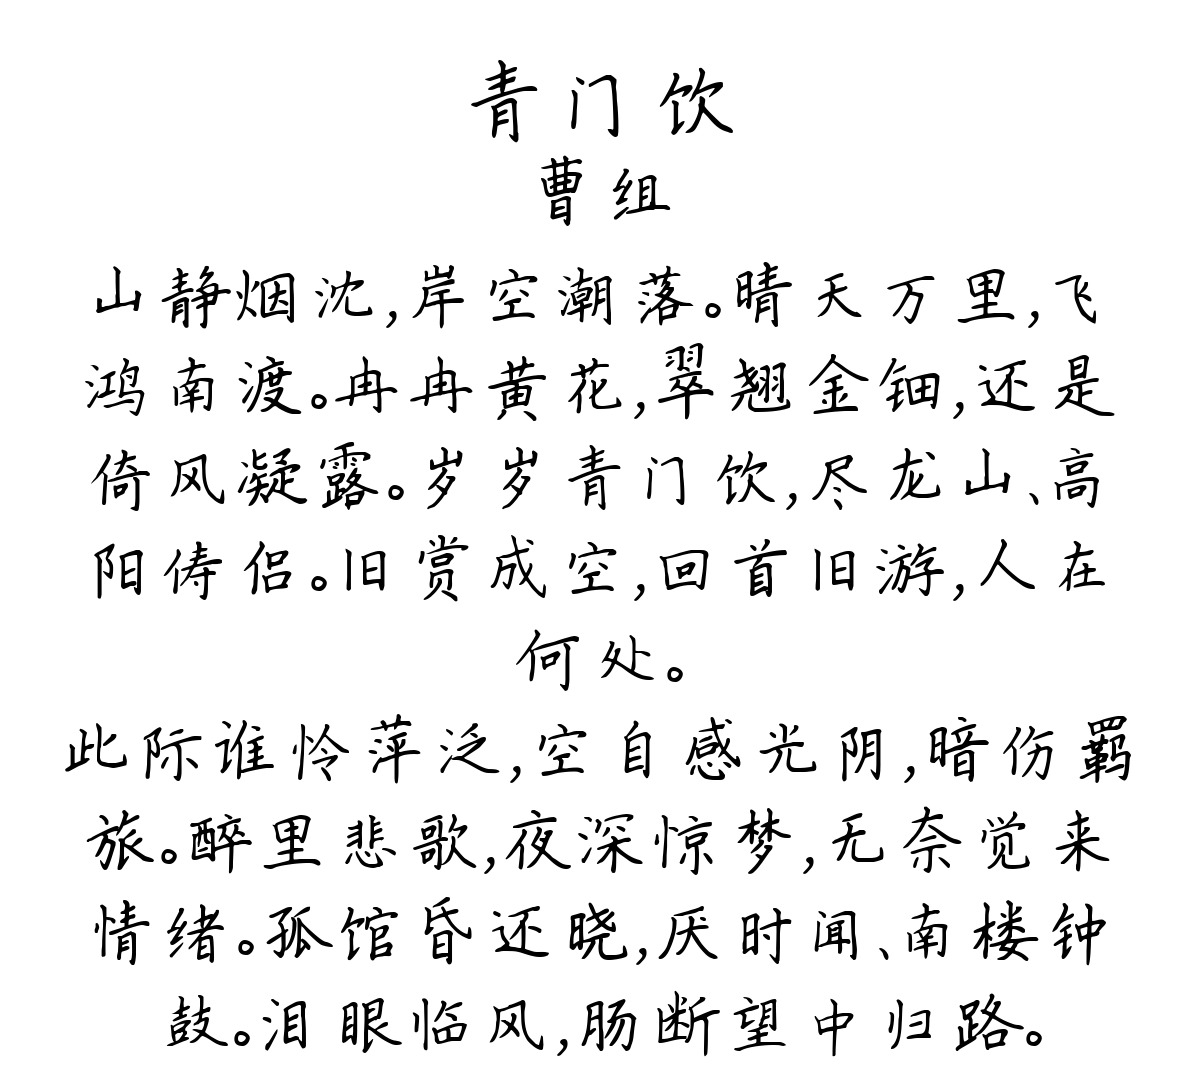 青门饮
曹组
山静烟沈,岸空潮落。晴天万里,飞
鸿南渡。冉冉黄花,翠翘金钿,还是
倚风凝露。岁岁青门饮,尽龙山、高
阳俦侣。旧赏成空,回首旧游,人在
何处。
此际谁怜萍泛,空自感光阴,暗伤羁
旅。醉里悲歌,夜深惊梦,无奈觉来
情绪。孤馆昏还晓,厌时闻、南楼钟
鼓。泪眼临风,肠断望中归路。